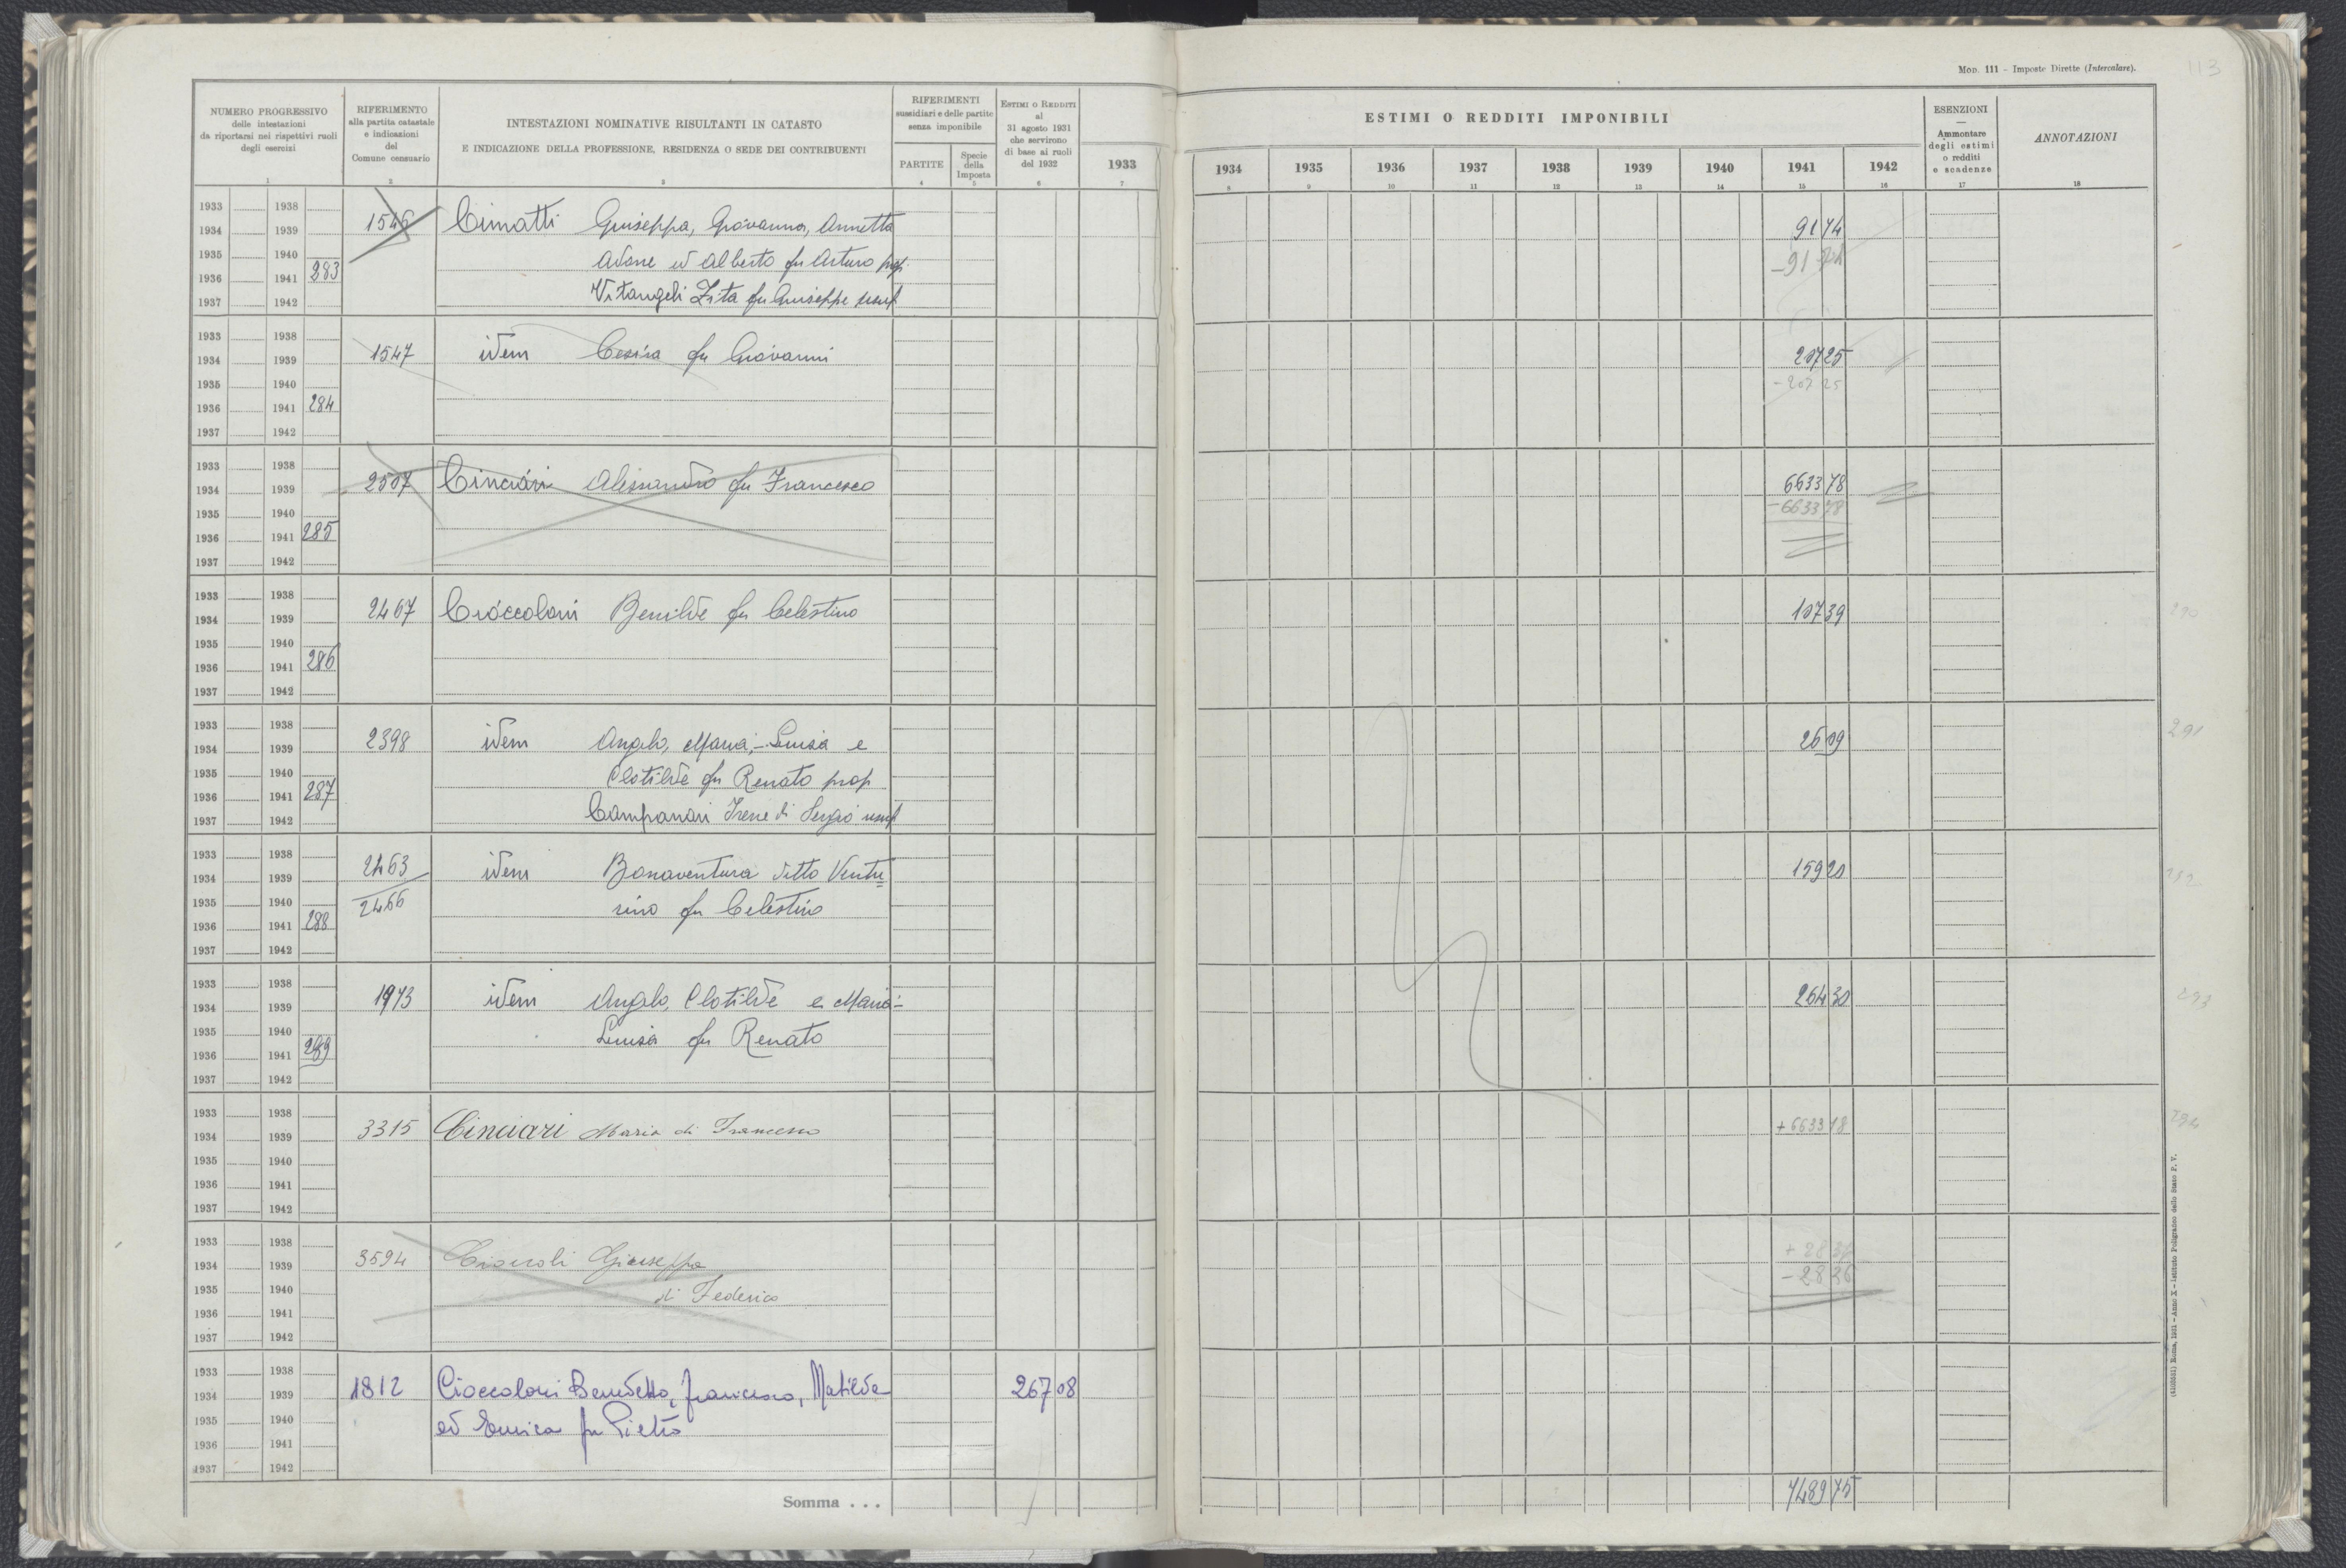 Mod. 111 - Imposte Dirette (Intercalare).
113
NUMERO PROGRESSIVO
delle intestazioni
da riportarsi nei rispettivi ruoli
degli esercizi
1
RIFERIMENTO
alla partita catastale
e indicazioni
del
Comune censuario
2
INTESTAZIONI NOMINATIVE RISULTANTI IN CATASTO
E INDICAZIONE DELLA PROFESSIONE, RESIDENZA O SEDE DEI CONTRIBUENTI
3
RIFERIMENTI
sussidiari e delle partite
senza imponibile
PARTITE
4
Specie
della
Imposta
5
Estimi o Redditi
al
31 agosto 1931
che servirono
di base ai ruoli
del 1932
6
1933
7
ESTIMI O REDDITI IMPONIBILI
1934 1935 1936 1937 1938 1939 1940 1941 1942
8 9 10 11 12 13 14 15 16
ESENZIONI
Ammontare
degli estimi
o redditi
e scadenze
17
ANNOTAZIONI
18
1933 1938
1934 1939 1546 Cimatti Giuseppa, Giovanna, Annetta 91 74
1935 1940 Adone ed Alberto fu Arturo prop. -91 74
1936 1941 283
1937 1942 Vitangeli Zita fu Giuseppe usuf
1933 1938
1934 1939 1547 idem Cesira fu Giovanni 207 25
1935 1940 -207 25
1936 1941 284
1937 1942
1933 1938
1934 1939 2507 Cinciari Alessandro fu Francesco 6633 78
1935 1940 -6633 78
1936 1941 285
1937 1942
1933 1938
1934 1939 2467 Cioccoloni Benilde fu Celestino 107 39 290
1935 1940
1936 1941 286
1937 1942
1933 1938
1934 1939 2398 idem Angelo, Maria-Luisa e 26 09 291
1935 1940 Clotilde fu Renato prop
1936 1941 287
1937 1942 Campanari Irene di Sergio usuf
1933 1938
1934 1939 2463 idem Bonaventura detto Ventu= 159 20 292
1935 1940 2466 rino fu Celestino
1936 1941 288
1937 1942
1933 1938
1934 1939 1973 idem Angelo, Clotilde e Maria- 264 30 293
1935 1940 Luisa fu Renato
1936 1941 289
1937 1942
1933 1938
1934 1939 3315 Cinciari Maria di Francesco +6633 78 294
1935 1940
1936 1941
1937 1942
1933 1938
1934 1939 3594 Giuseppa
1935 1940 di Federico
1936 1941
1937 1942
1933 1938
1934 1939 1812 Cioccoloni Benedetto, Francesco, Matilde 267 08
1935 1940 ed Enrica fu Pietro
1936 1941
1937 1942
Somma . . . 7489 75
Roma, 1931 - Anno X - Istituto Poligrafico dello Stato P. V.